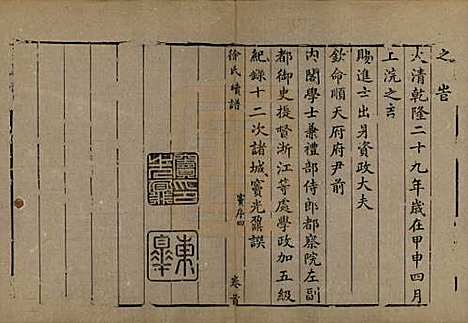 之吉
大清乾隆二十九年歲在甲申四月
上浣之吉
賜進士出身資政大夫
欽命順天府府尹前
內閣學士兼禮部侍郎都察院左副
都御史提督浙江等處學政加五級
紀錄十二次諸城竇光鼐譔
徐氏續譜
竇序四
卷首
竇光鼐印
東皋